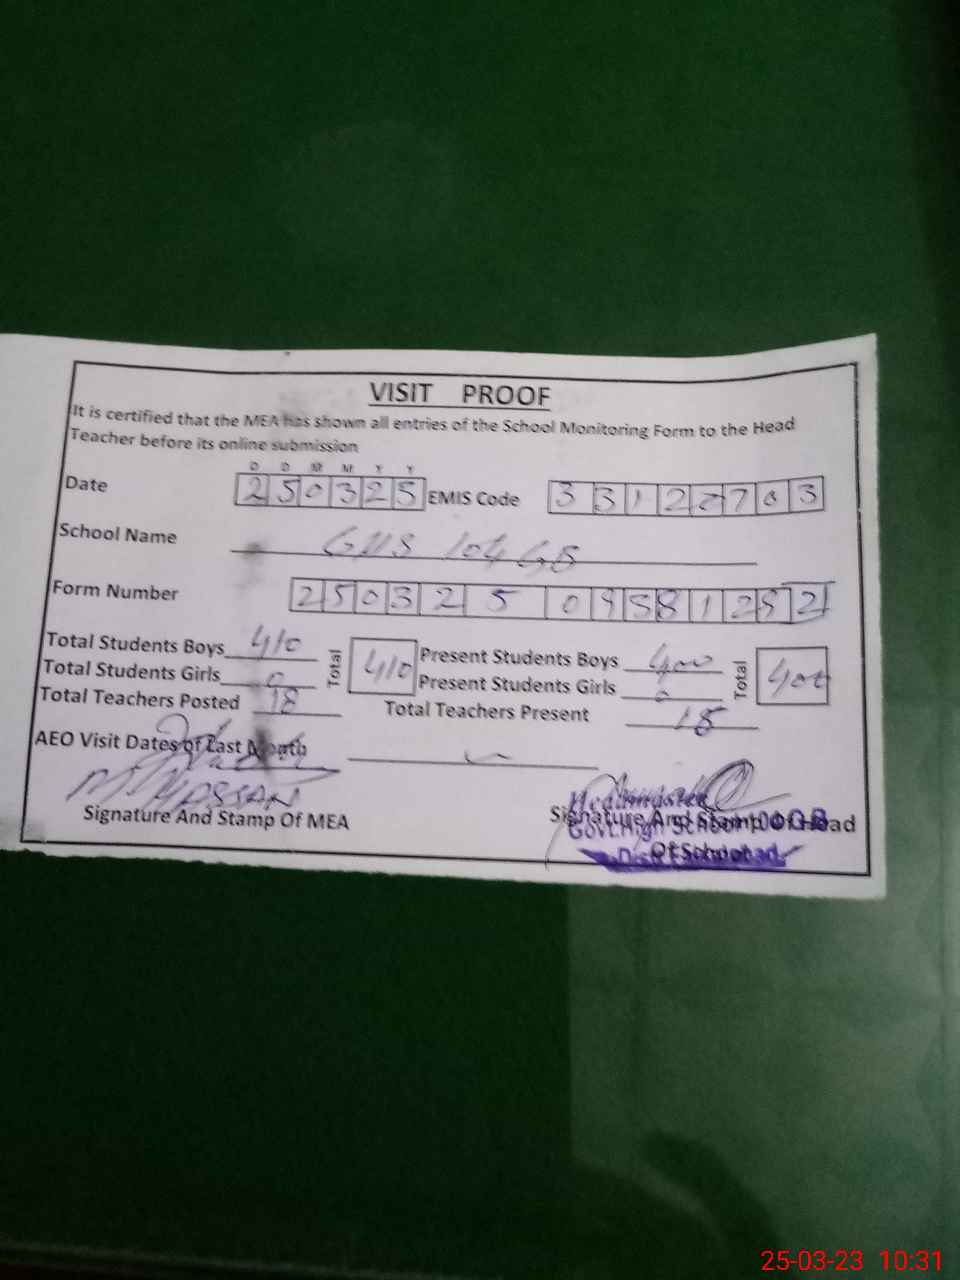 VISIT PROOF
It is certified that the MEA has shown all entries of the School Monitoring Form to the Head
Teacher before its online submission
D D M M Y Y
Date 2 5 0 3 2 5 EMIS Code 3 3 1 2 2 7 0 3
School Name GHS 104 GB
Form Number 2 5 0 3 2 5 0 9 5 8 1 2 5 2
Total Students Boys 410 Total 410 Present Students Boys 400 Total 400
Total Students Girls 0 Present Students Girls 0
Total Teachers Posted 18 Total Teachers Present 18
AEO Visit Dates of Last Month
HASSAN
Headmaster
Signature And Stamp Of MEA Signature And Stamp Of Head
Govt. High School 104 GB
Of School
25-03-23 10:31